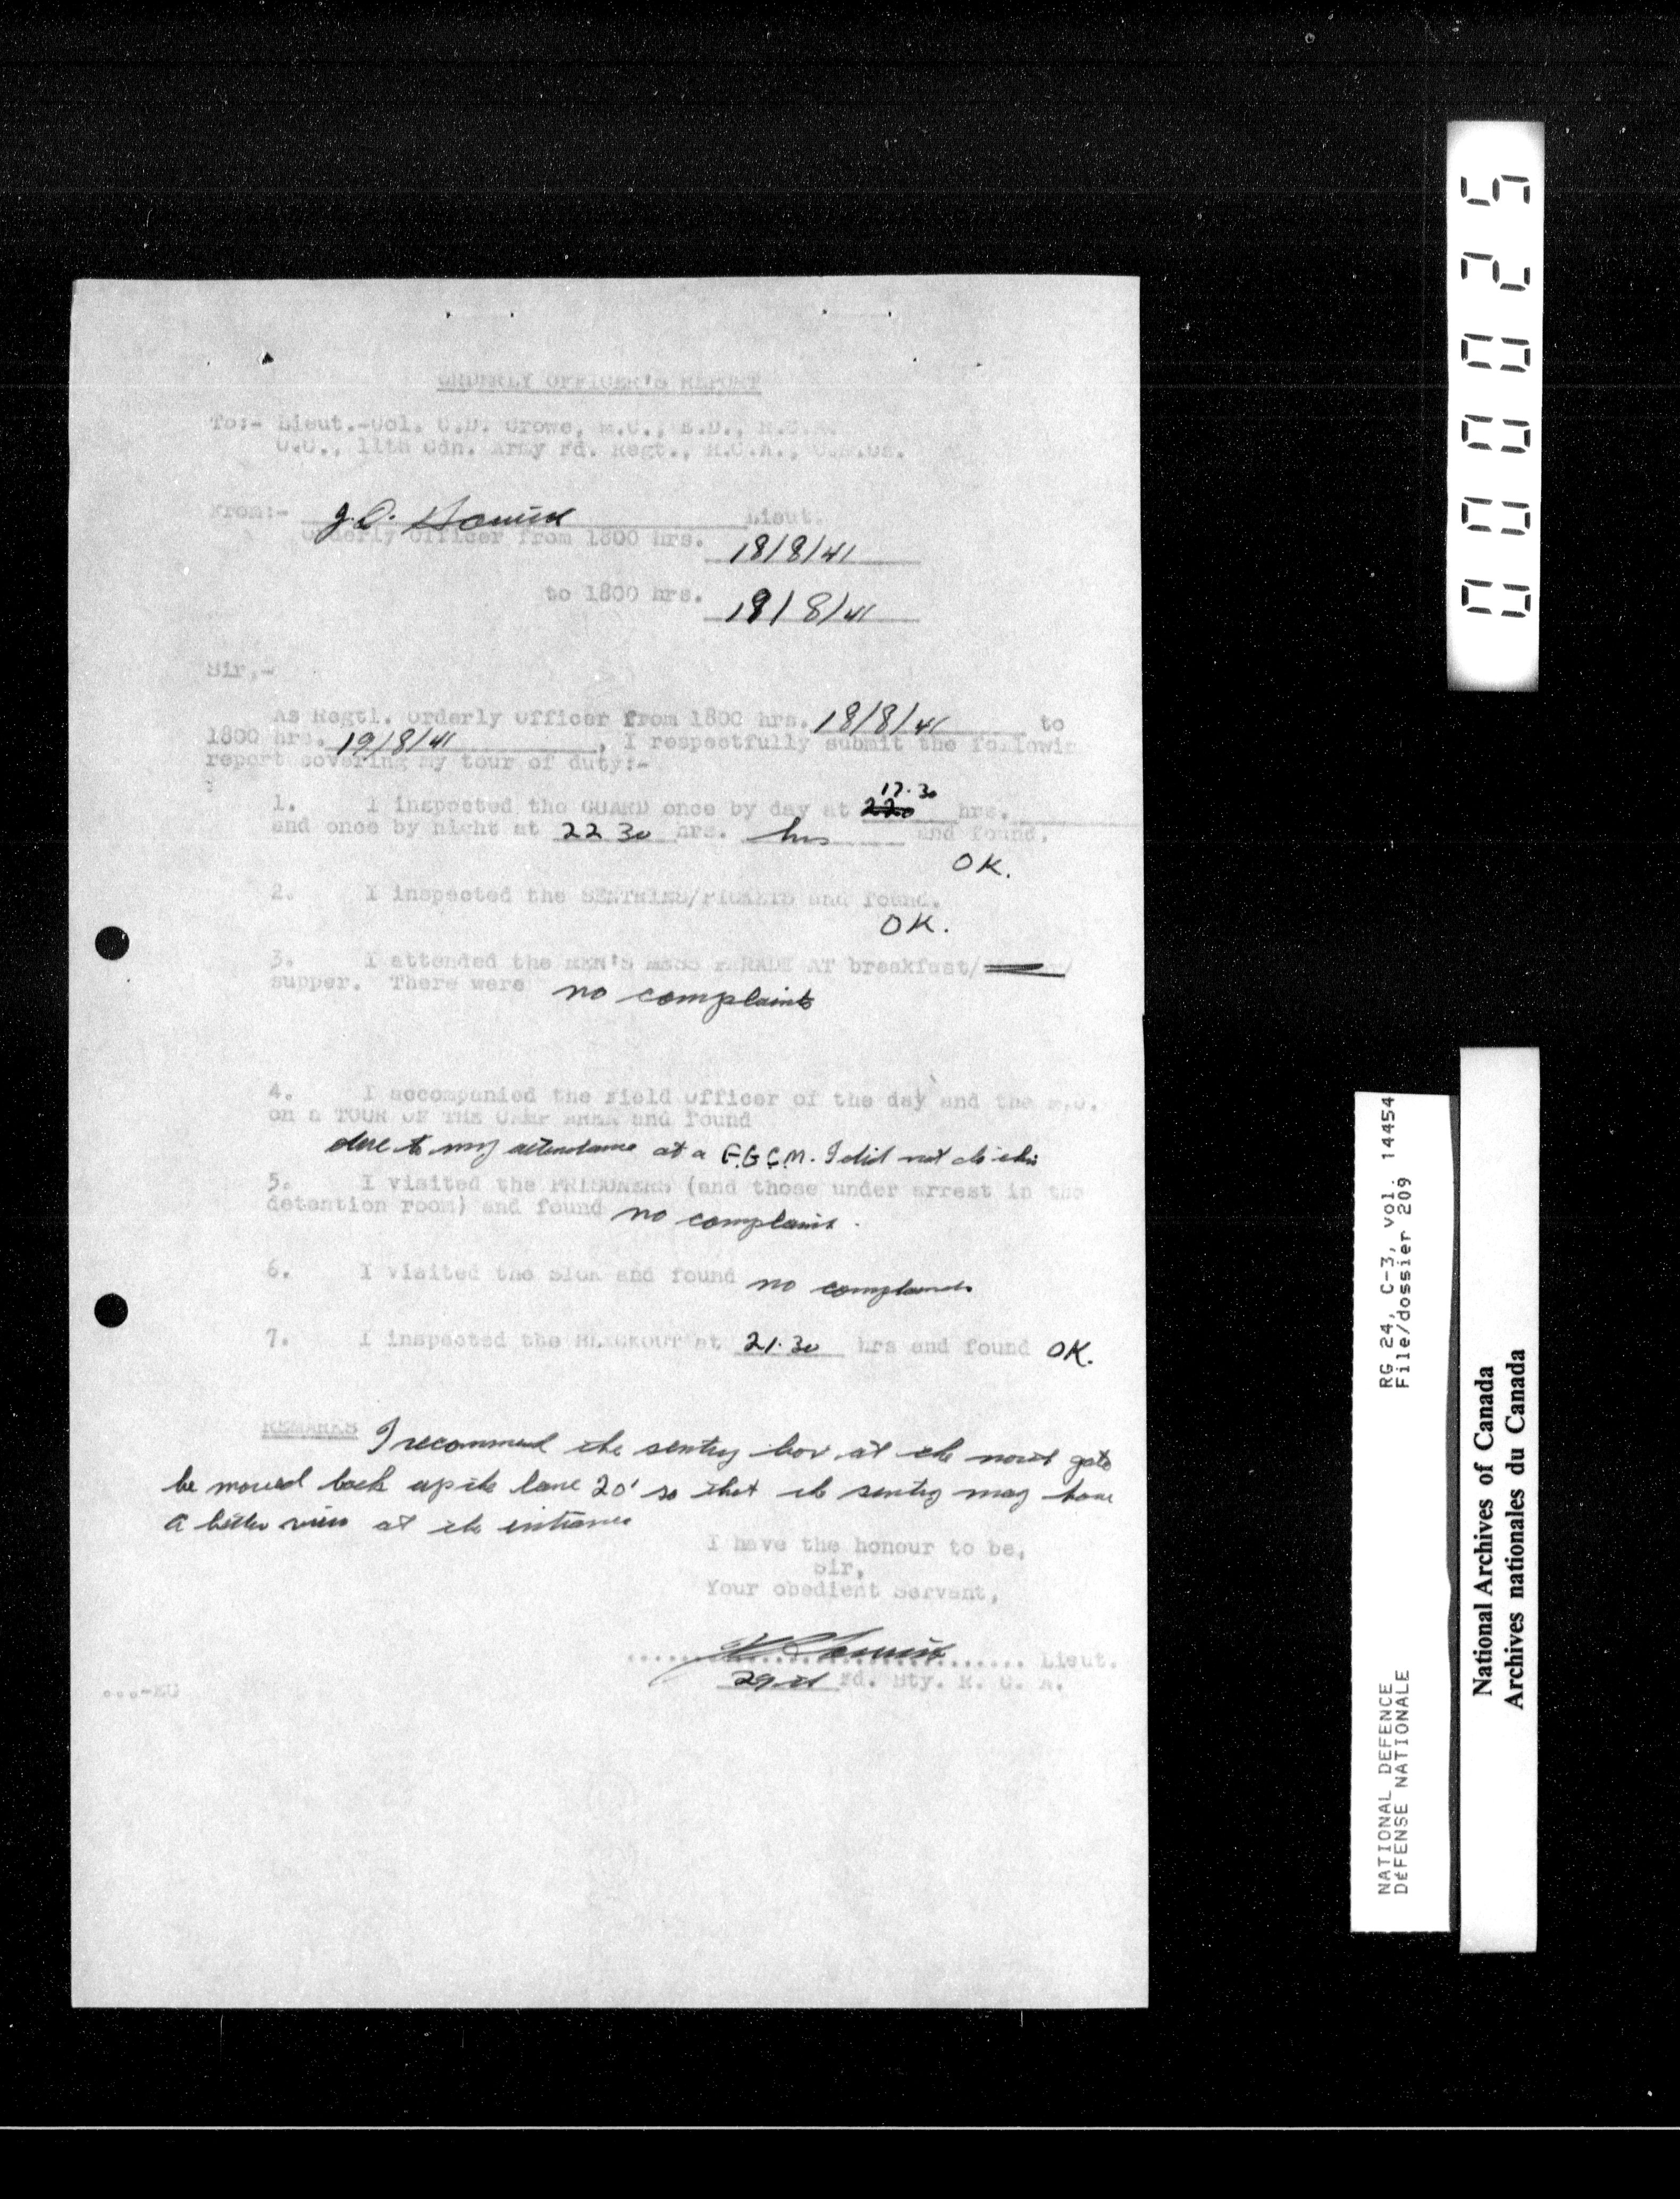 ORDERLY OFFICER'S REPORT
To:- Lieut.-Col. C.D. Crowe, M.C., E.D., R.C.A.
O.C., 11th Cdn. Army Fd. Regt., R.C.A., C.A.Os.
From:- J.D. Lieut.
Orderly Officer from 1800 hrs. 18/8/41
to 1800 hrs. 19/8/41
Sir,-
As Regtl. Orderly Officer from 1800 hrs. 18/8/41 to
1800 hrs. 19/8/41, I respectfully submit the followin
report covering my tour of duty:-
17.30
1. I inspected the GUARD once by day at 220 hrs.
and once by night at 22 30 hrs. hrs and found.
OK.
2. I inspected the SENTRIES/PICKETS and found.
OK.
3. I attended the MEN'S MESS PARADE AT breakfast/
supper. There were no complaints
4. I accompanied the Field Officer of the day and the M.O.
on a TOUR OF THE CAMP AREA and found
due to my attendance at a F.G.C.M. I did not do this
5. I visited the PRISONERS (and those under arrest in the
detention room) and found no complaint.
6. I visited the SICK and found no complaints
7. I inspected the BLACKOUT at 21.30 hrs and found OK.
REMARKS I recommend the sentry box at the gate
be moved back up the lane 20' so that the sentry may have
a better view at the entrance
I have the honour to be,
Sir,
Your obedient Servant,
Lieut.
29th Fd. Bty. R. C. A.
...-EU
000025
RG 24, C-3, vol. 14454
File/dossier 209
NATIONAL DEFENCE
DéFENSE NATIONALE
National Archives of Canada
Archives nationales du Canada